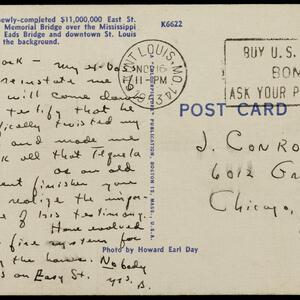 newly-completed $11,000,000 East St.
Memorial Bridge over the Mississippi
Eads Bridge and downtown St. Louis
the background.
K6622
ST. LOUIS, MO.
NOV 16
11-PM
1943
BUY U.S.
BON
ASK YOUR P
POST CARD
"COLOURPICTURE" PUBLICATION, BOSTON 15, MASS., U.S.A.
Photo by Howard Earl Day
ack – my Ex-boss
reinstate me
will come down
testify that he
ically twisted my
and made me
k all that Tequela
as an old
ent finisher you
realize the impor
e of his testimony.
Have evolved
fire system for
the horses. Nobody
s on Easy St.
yrs. B.
J. Conro
6012
Chicago,